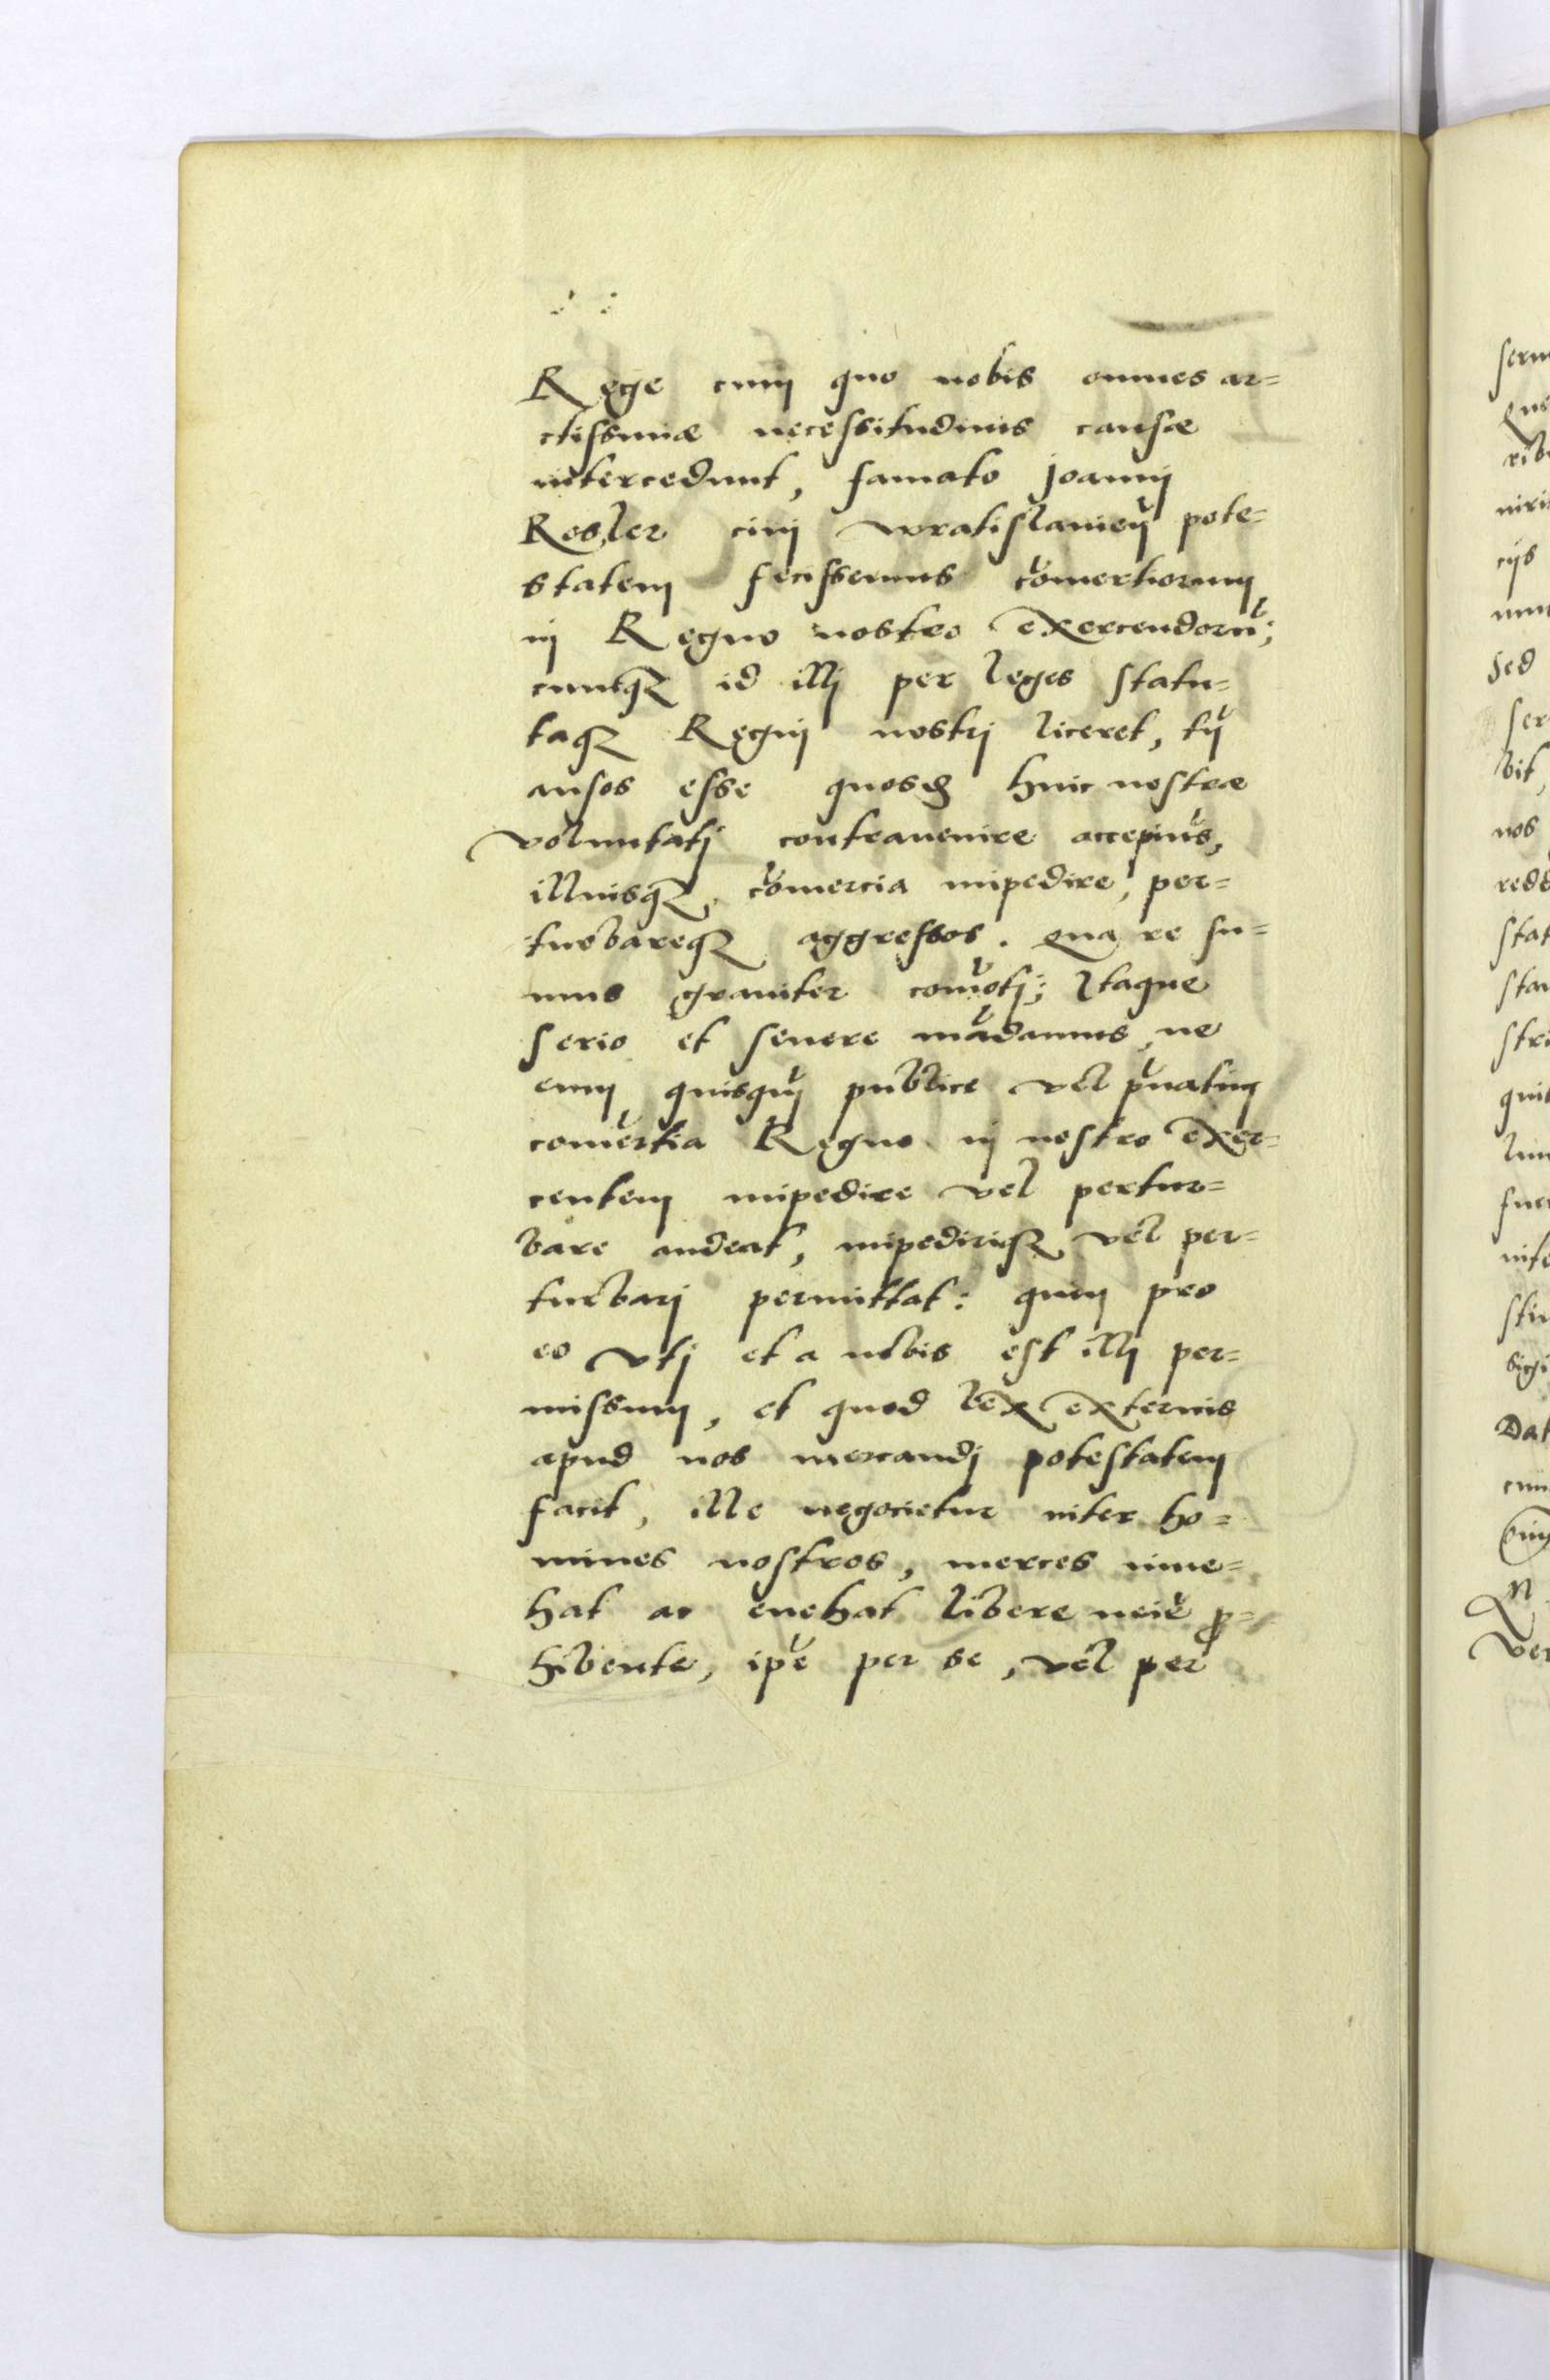 Rege cum quo nobis omnes ar=
ctissimæ necessitudinis causæ
intercedunt, famato Joannj
Resler ciuj wratislauieñ pote=
statem fecissemus com̃ertiorum
in Regno nostro exercendorũ;
cumq₃ id illj per leges statu=
taq₃ Regnj nostrj liceret, tñ
ausos esse quosd̃ huic nostræ
voluntatj contrauenire accepim̃s,
illiusq₃ com̃ercia impedire, per=
turbareq₃ aggressos. Qua re su=
mus grauiter com̃otj; Itaque
serio et seuere mãdamus, ne
eum quisquã publice vel pr̃uatim
com̃ertia Regno in nostro exer=
centem impedire vel pertur=
bare audeat, impediriq₃ vel per=
turbarj permittat: quin pro
eo vtj et a nobis est illj per=
missum, et quod lex externis
apud nos mercandj potestatem
facit, ille negocietur inter ho=
mines nostros, merces inue=
hat ac euehat libere nem̃e ꝓ=
hibente, ip̃e per se, vel per
serm
que
niris
cijs
Sed
bit,
nos
redd
stat
stri
quib
sigi
Dat
ver